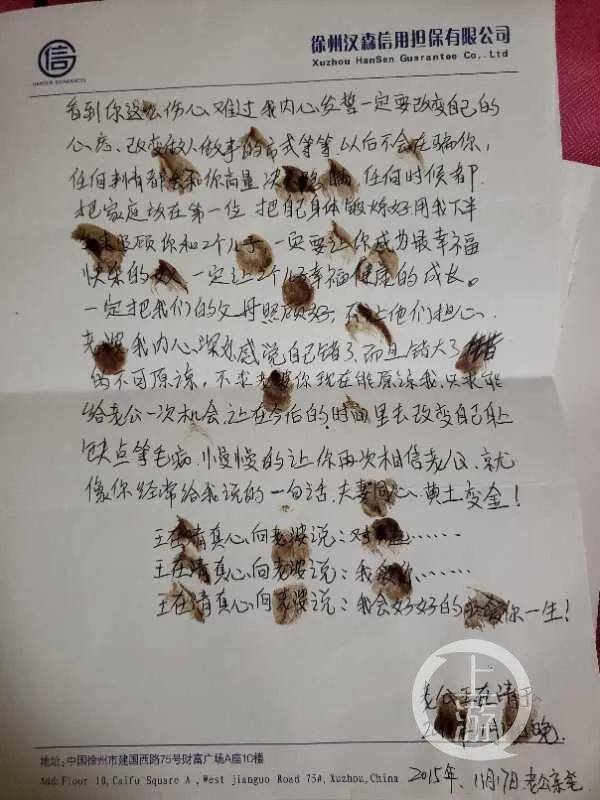 信
HANSEN GUARANTEE
徐州汉森信用担保有限公司
Xuzhou HanSen Guarantee Co,.Ltd
看到你这么伤心难过我内心发誓一定要改变自己的
心态、改变做人做事的方式等等.以后不会在骗你,
任何事情都会和你商量 任何时候都
把家庭放在第一位 把自己身体锻炼好用我下半
照顾你和2个儿子 一定要让你成为最幸福
快乐的 一定让2个儿子幸福健康的成长。
一定把我们的父母照顾好,不让他们担心.
老婆我内心深处感觉自己错了而且错大了
不可原谅,不求老婆你现在能原谅我,只求能
给老公一次机会,让在今后的时间里去改变自己身上
缺点等毛病,慢慢的让你再次相信老公,就
像你经常给我说的一句话,夫妻同心,黄土变金!
王在清真心向老婆说:对不起……
王在清真心向老婆说:我爱你……
王在清真心向老婆说:我会好好的 你一生!
老公王在清于
晚
2015年.11月17日 老公亲笔
上游
地址:中国徐州市建国西路75号财富广场A座10楼
Add:Floor 10,Caifu Square A ,West jianguo Road 75#,Xuzhou,China